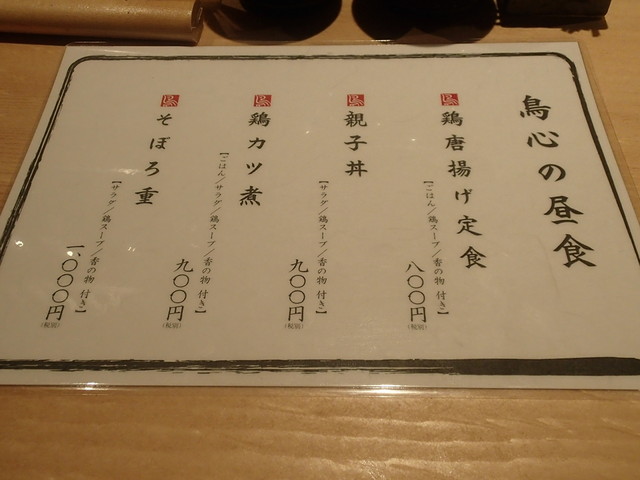 鳥心の昼食
鶏唐揚げ定食
【ごはん/鶏スープ/香の物 付き】
八〇〇円
(税別)
親子丼
【サラダ/鶏スープ/香の物 付き】
九〇〇円
(税別)
鶏カツ煮
【ごはん/サラダ/鶏スープ/香の物 付き】
九〇〇円
(税別)
そぼろ重
【サラダ/鶏スープ/香の物 付き】
一、〇〇〇円
(税別)